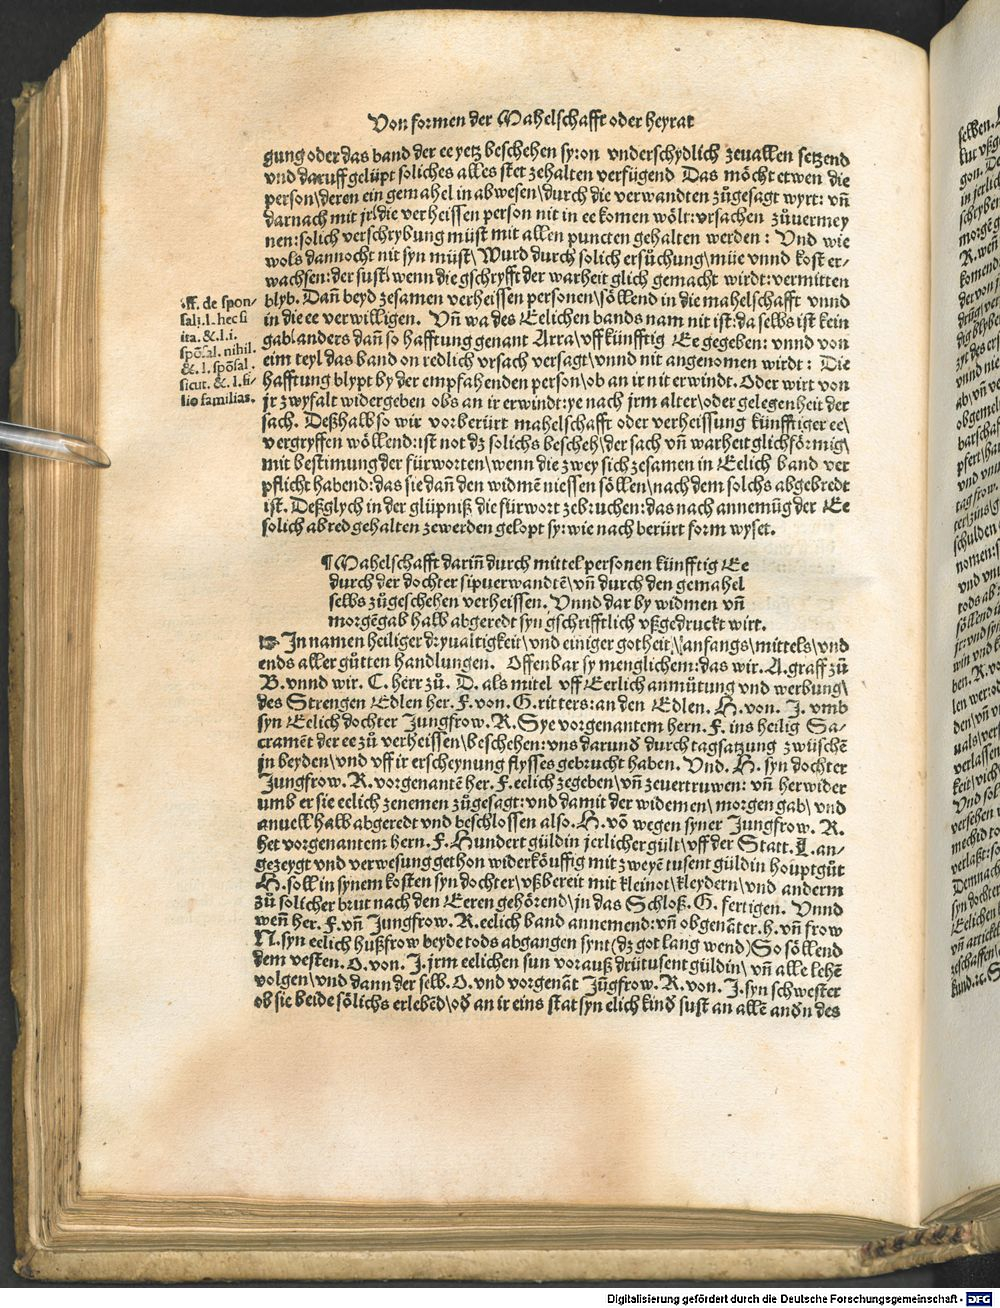 Von formen der Mahelschafft oder heyrat
gung oder das band der ee yetz beschehen sy: on vnderschydlich zeuallen setzend
vnd daruff gelüpt soliches alles stet zehalten verfügend Das möcht etwen die
person\deren ein gemahel in abwesen\durch die verwandten zůgesagt wyrt: vñ
darnach mit jr\die verheissen person nit in ee komen wölt: vrsachen zůuermey
nen: solich verschrybung müst mit allen puncten gehalten werden: Vnd wie
wols dannocht nit syn müst\Wurd durch solich ersůchung\müe vnnd kost er-
wachsen: der sust\wenn die gschryfft der warheit glich gemacht wirdt: vermitten
blyb. Dañ beyd zesamen verheissen personen\söllend in die mahelschafft vnnd
in die ee verwilligen. Vñ wa des Eelichen bands nam nit ist: da selbs ist kein
gab\anders dañ so hafftung genant Arra\vff künfftig Ee gegeben: vnnd von
eim teyl das band on redlich vrsach versagt\vnnd nit angenomen wirdt: Die
hafftung blypt by der empfahenden person\ob an ir nit erwindt. Oder wirt von
jr zwyfalt widergeben obs an ir erwindt: ye nach jrm alter\oder gelegenheit der
sach. Deßhalb so wir vorberürt mahelschafft oder verheissung künfftiger ee\
vergryffen wöllend: ist not dz solichs bescheh\der sach vñ warheit glichförmig\
mit bestimung der fürworten\wenn die zwey sich zesamen in Eelich band ver
pflicht habend: das sie dañ den widmē niessen söllen\nach dem solchs abgebredt
ist. Deßglych in der glüpniß die fürwort zebruchen: das nach annemūg der Ee
solich abred gehalten zewerden gelopt sy: wie nach berürt form wyset.
ff. de spon-
salī. l. hec si
ita. &. l. i.
spōsal. nihil.
&. l. spōsal.
sicut. &. l. fi-
lio familias.
¶ Mahelschafft dariñ durch mittel personen künfftig Ee
durch der dochter sipuerwandtē\vñ durch den gemahel
selbs zůgeschehen verheissen. Vnnd dar by widmen vñ
morgēgab halb abgeredt syn\gschrifftlich vßgedruckt wirt.
☞ In namen heiliger dryualtigkeit\vnd einiger gotheit\anfangs\mittels\vnd
ends aller gůtten handlungen. Offenbar sy menglichem: das wir. A. graff zů
B. vnnd wir. C. herr zů. D. als mitel vff Eerlich anmůtung vnd werbung\
des Strengen Edlen her. F. von. G. ritters: an den Edlen. H. von. J. vmb
syn Eelich dochter Jungfrow. R. Sye vorgenantem hern. F. ins heilig Sa-
cramēt der ee zů verheissen\beschehen: vns darunð durch tagsatzung zwüschē
jn beyden\vnd vff ir erscheynung flysses gebrucht haben. Vnd. H. syn dochter
Jungfrow. R. vorgenantē her. F. eelich zegeben\vñ zeuertruwen: vñ herwider
umb er sie eelich zenemen zůgesagt: vnd damit der widemen\morgen gab\vnd
anuell halb abgeredt vnd beschlossen also. H. vō wegen syner Jungfrow. R.
het vorgenantem hern. F. Hundert güldin jerlicher gült\vff der Statt. L. an-
gezeygt vnd verwesung gethon widerköuffig mit zweyē tusent güldin houptgůt
H. soll in synem kosten syn dochter\vßbereit mit kleinot\kleydern\vnd anderm
zů solicher brut nach den Eeren gehörend\jn das Schloß. G. fertigen. Vnnd
weñ her. F. vñ Jungfrow. R. eelich band annemend: vñ obgenāter. h. vñ frow
N. syn eelich hußfrow beyde tods abgangen synt (dz got lang wend) So söllend
dem vesten. O. von. J. jrm eelichen sun vorauß drütusent güldin\vñ alle lehē
volgen\vnd dann der selb. O. vnd vorgenāt Jūgfrow. R. von. J. syn schwester
ob sie beide sölichs erlebēd\oð an ir eins stat syn elich kinð sust an allē anðn des